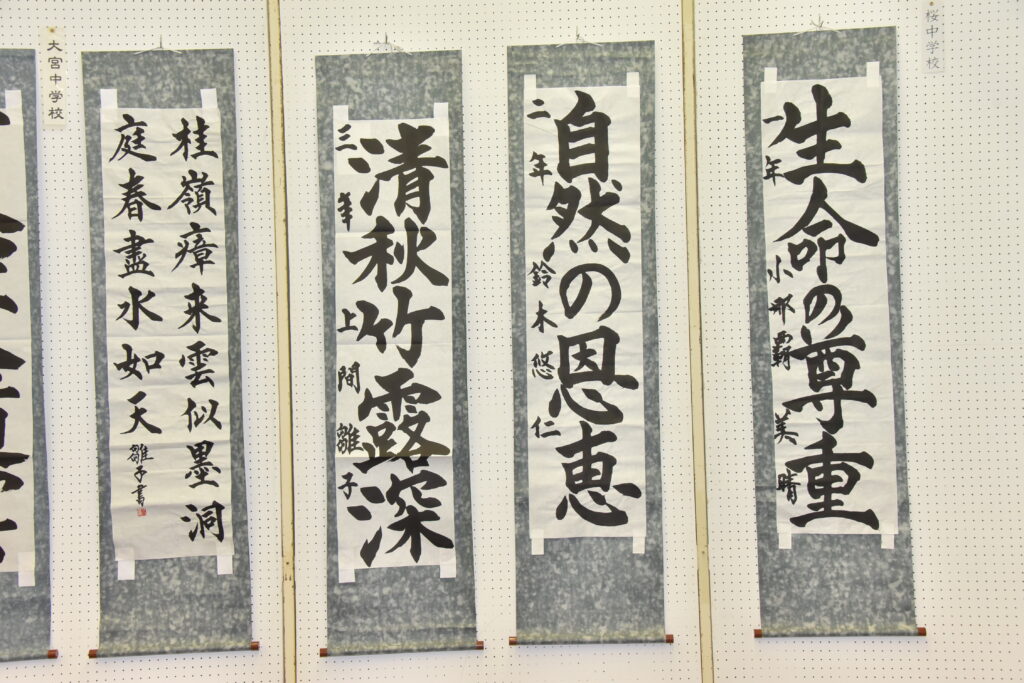 桜中学校
生命の尊重
一年 小那覇 美晴
自然の恩恵
二年 鈴木悠仁
清秋竹露深
三年 上間雛子
桂嶺瘴来雲似墨洞
庭春盡水如天
雛子書
大宮中学校